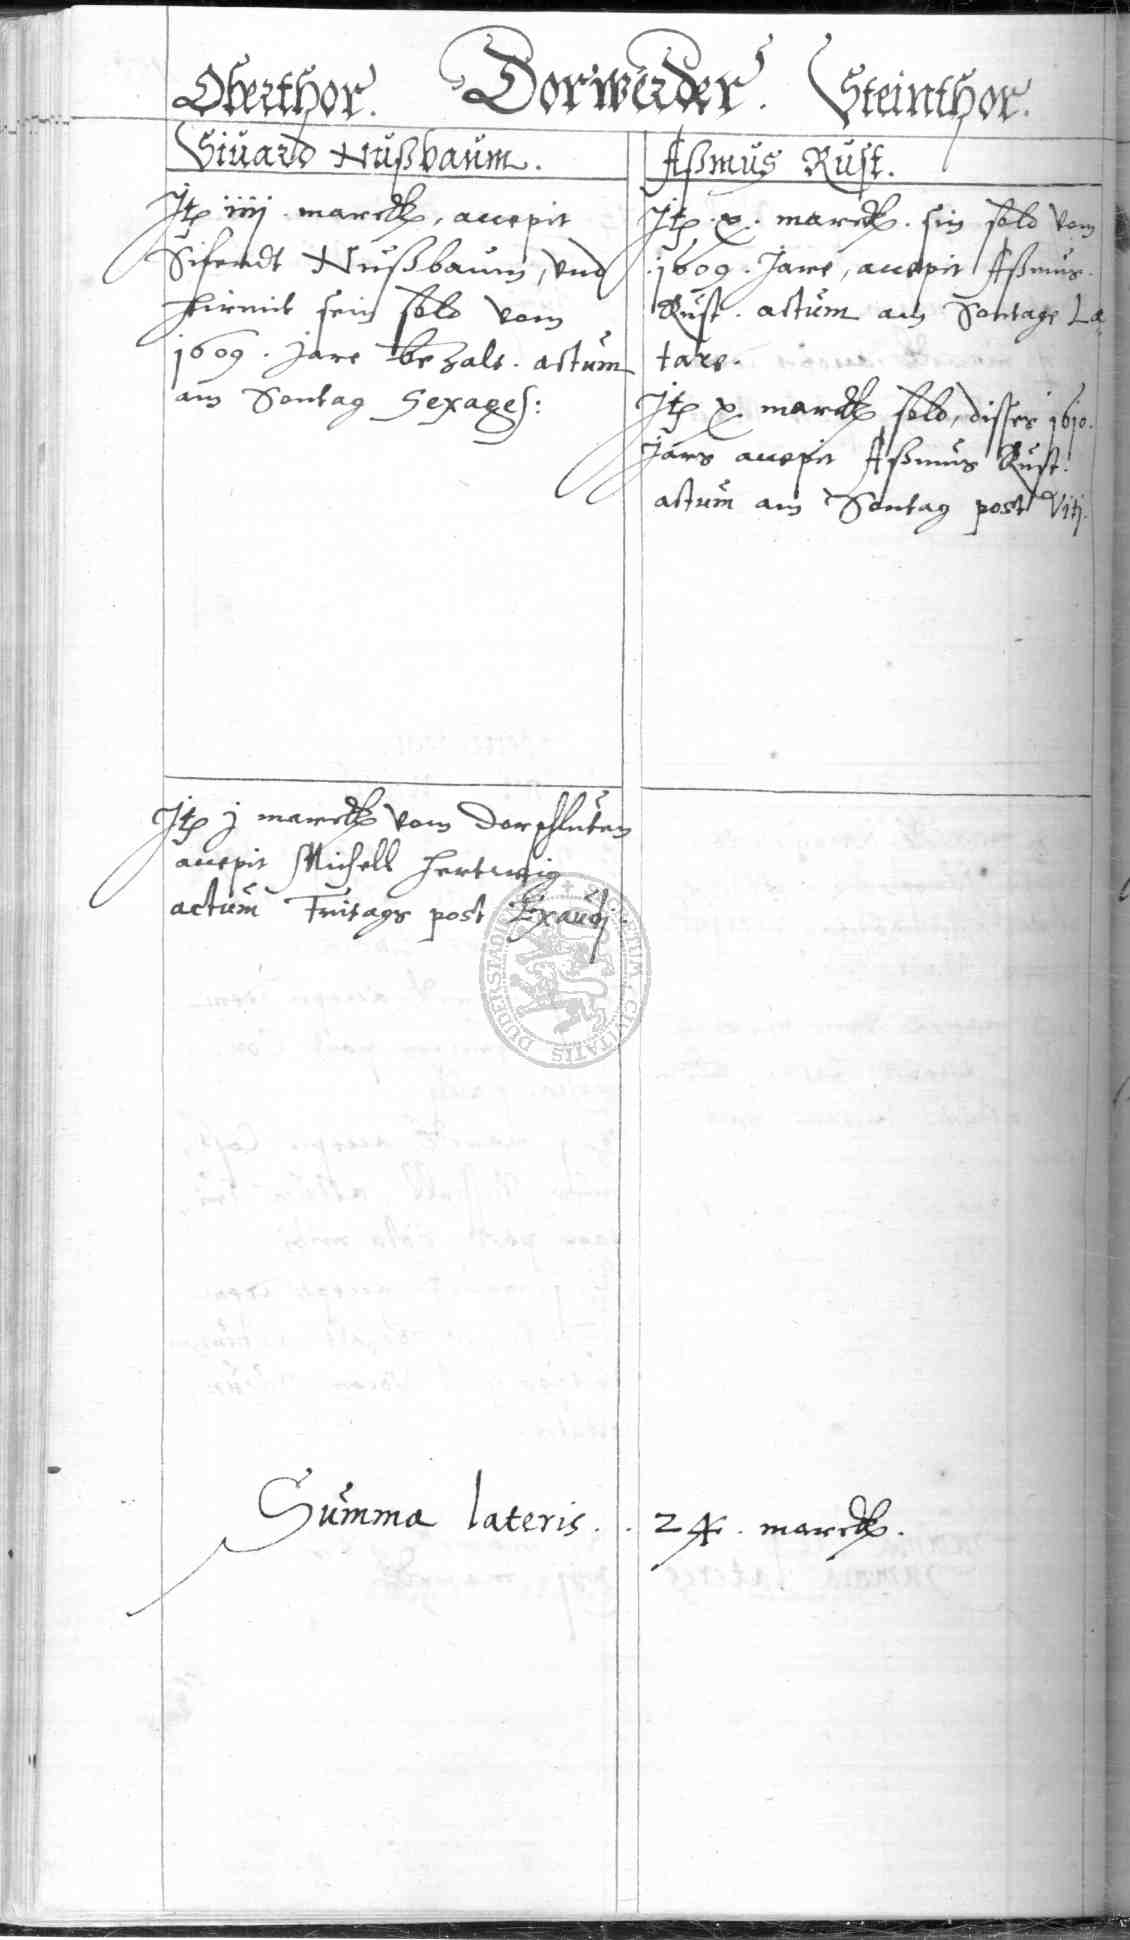 Oberthor. Dorwerder. Steinthor.
Siuard Nußbaum.
Jtp iiij. marck, accepit
Siferdt Nußbaum, vnd
hirmit sein sold vom
1609. Jare bezalt. actum
am Sontag Sexages:
Aßmus Rust.
Jtp. x. marck. sin sold vom
1609. Jare, accepit Aßmus
Rust. actum am Sontage Læ
tare.
Jtp x. marck sold, disses 1610.
Jars accepit Aßmus Rust.
actum am Sontag post Viti.
Jtp j marck vom Dorschluten
accepit Michell Hertwig
actum Fritags post Exaudi.
DUDERSTADIENSIS CIVITATIS
Summa lateris. . 24. marck.